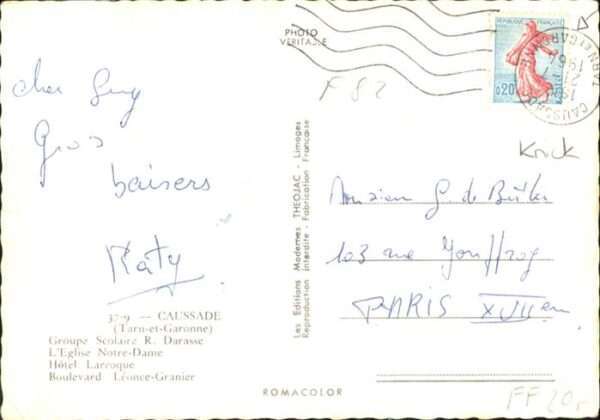 PHOTO
VERITABLE
REPUBLIQUE FRANÇAISE
0,20
TARN ET GARONNE
CAUSSADE
F 82
Cher Guy
Gros
baisers
Katy
37-9 — CAUSSADE
(Tarn-et-Garonne)
Groupe Scolaire R. Darasse
L'Eglise Notre-Dame
Hôtel Larroque
Boulevard Léonce-Granier
Les Editions Modernes THEOJAC - Limoges
Reproduction interdite Fabrication Francaise
Monsieur G. de
103 rue Jouffroy
PARIS XVII em
ROMACOLOR
FF 20